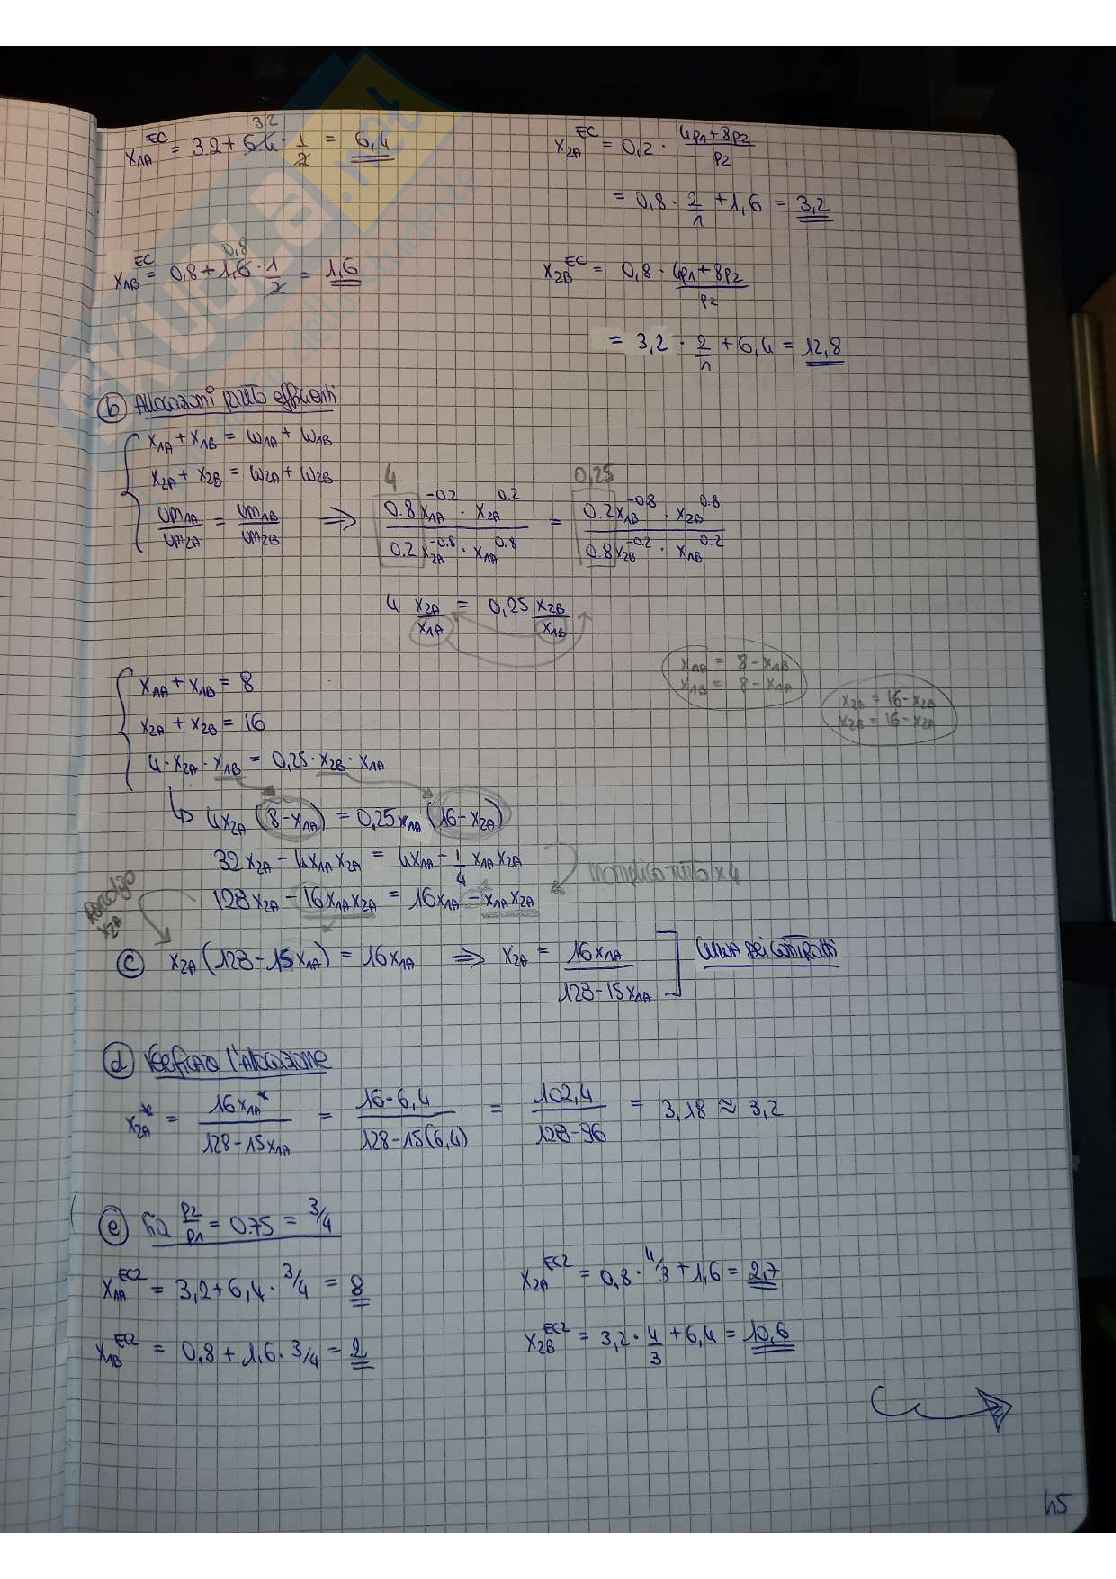 x1A^EC = 3.2 + 6.4 · 1/2 = 6,4
3.2
x2A^EC = 0,2 · (4p1+8p2)/p2
= 0,8 · 2/1 + 1,6 = 3,2
x1B^EC = 0,8 + 1,6 · 1/2 = 1,6
0,8
x2B^EC = 0,8 · (4p1+8p2)/p2
= 3,2 · 2/1 + 6,4 = 12,8
b Allocazioni pareto efficienti
x1A + x1B = ω1A + ω1B
x2A + x2B = ω2A + ω2B
UM1A/UM2A = UM1B/UM2B ⇒ (0.8 x1A^-0.2 · x2A^0.2)/(0.2 x2A^-0.8 · x1A^0.8) = (0.2 x1B^-0.8 · x2B^0.8)/(0.8 x2B^-0.2 · x1B^0.2)
4 0,25
4 x2A/x1A = 0,25 x2B/x1B
x1A = 8 - x1B
x1B = 8 - x1A
x2A = 16 - x2A
x2A = 16 - x2A
x1A + x1B = 8
x2A + x2B = 16
4 · x2A · x1B = 0,25 · x2B · x1A
↳ 4x2A (8 - x1A) = 0,25 x1A (16 - x2A)
32 x2A - 4 x1A x2A = 4 x1A - 1/4 x1A x2A
moltiplico tutto x4
128 x2A - 16 x1A x2A = 16 x1A - x1A x2A
x2A
c x2A (128 - 15 x1A) = 16 x1A ⇒ x2A = 16 x1A/(128 - 15 x1A) Curva dei contratti
d Verifico l'allocazione
x2A* = 16 x1A*/(128 - 15 x1A) = 16 · 6,4/(128 - 15(6,4)) = 102,4/(128 - 96) = 3,18 ≈ 3,2
e p2/p1 = 0.75 = 3/4
x1A^EC2 = 3,2 + 6,4 · 3/4 = 8
x2A^EC2 = 0,8 · 4/3 + 1,6 = 2,7
x1B^EC2 = 0.8 + 1,6 · 3/4 = 2
x2B^EC2 = 3,2 · 4/3 + 6,4 = 10,6
45
SKUOLA.net